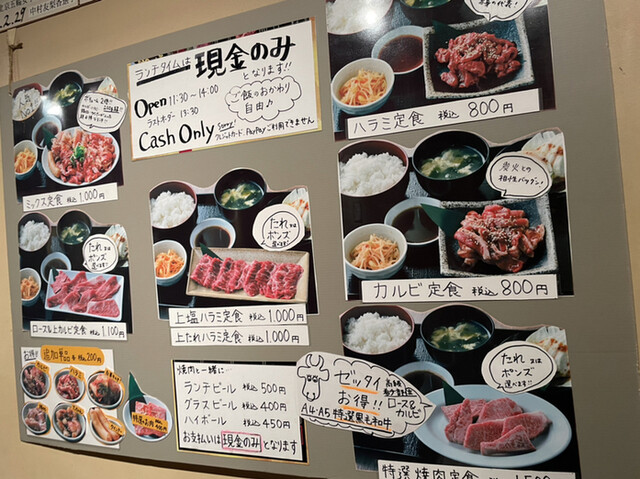 2.29
ランチタイムは 現金のみ
となります!!
Open 11:30～14:00
ラストオーダー 13:30
ご飯のおかわり
自由♪
Cash Only Sorry!
クレジットカード・PayPayご利用できません
ハラミ定食 税込 800円
ミックス定食 税込 1.000円
炭火との
相性バツグン!
たれ又は
ポンズ
選べます!!
カルビ定食 税込 800円
たれ又は
ポンズ
選べます!!
ロース&上カルビ定食 税込 1.100
上塩ハラミ定食 税込 1.000円
上たれハラミ定食 税込 1.000円
お得!! 追加単品 各 税込 200円
焼肉と一緒に…
ランチビール 税込 500円
グラスビール 税込 400円
ハイボール 税込 450円
お支払いは 現金のみ となります
ゼッタイ
お得!!
ロース&
カルビ
A4・A5 特選黒毛和牛
たれ又は
ポンズ
選べます!!
特選焼肉定食